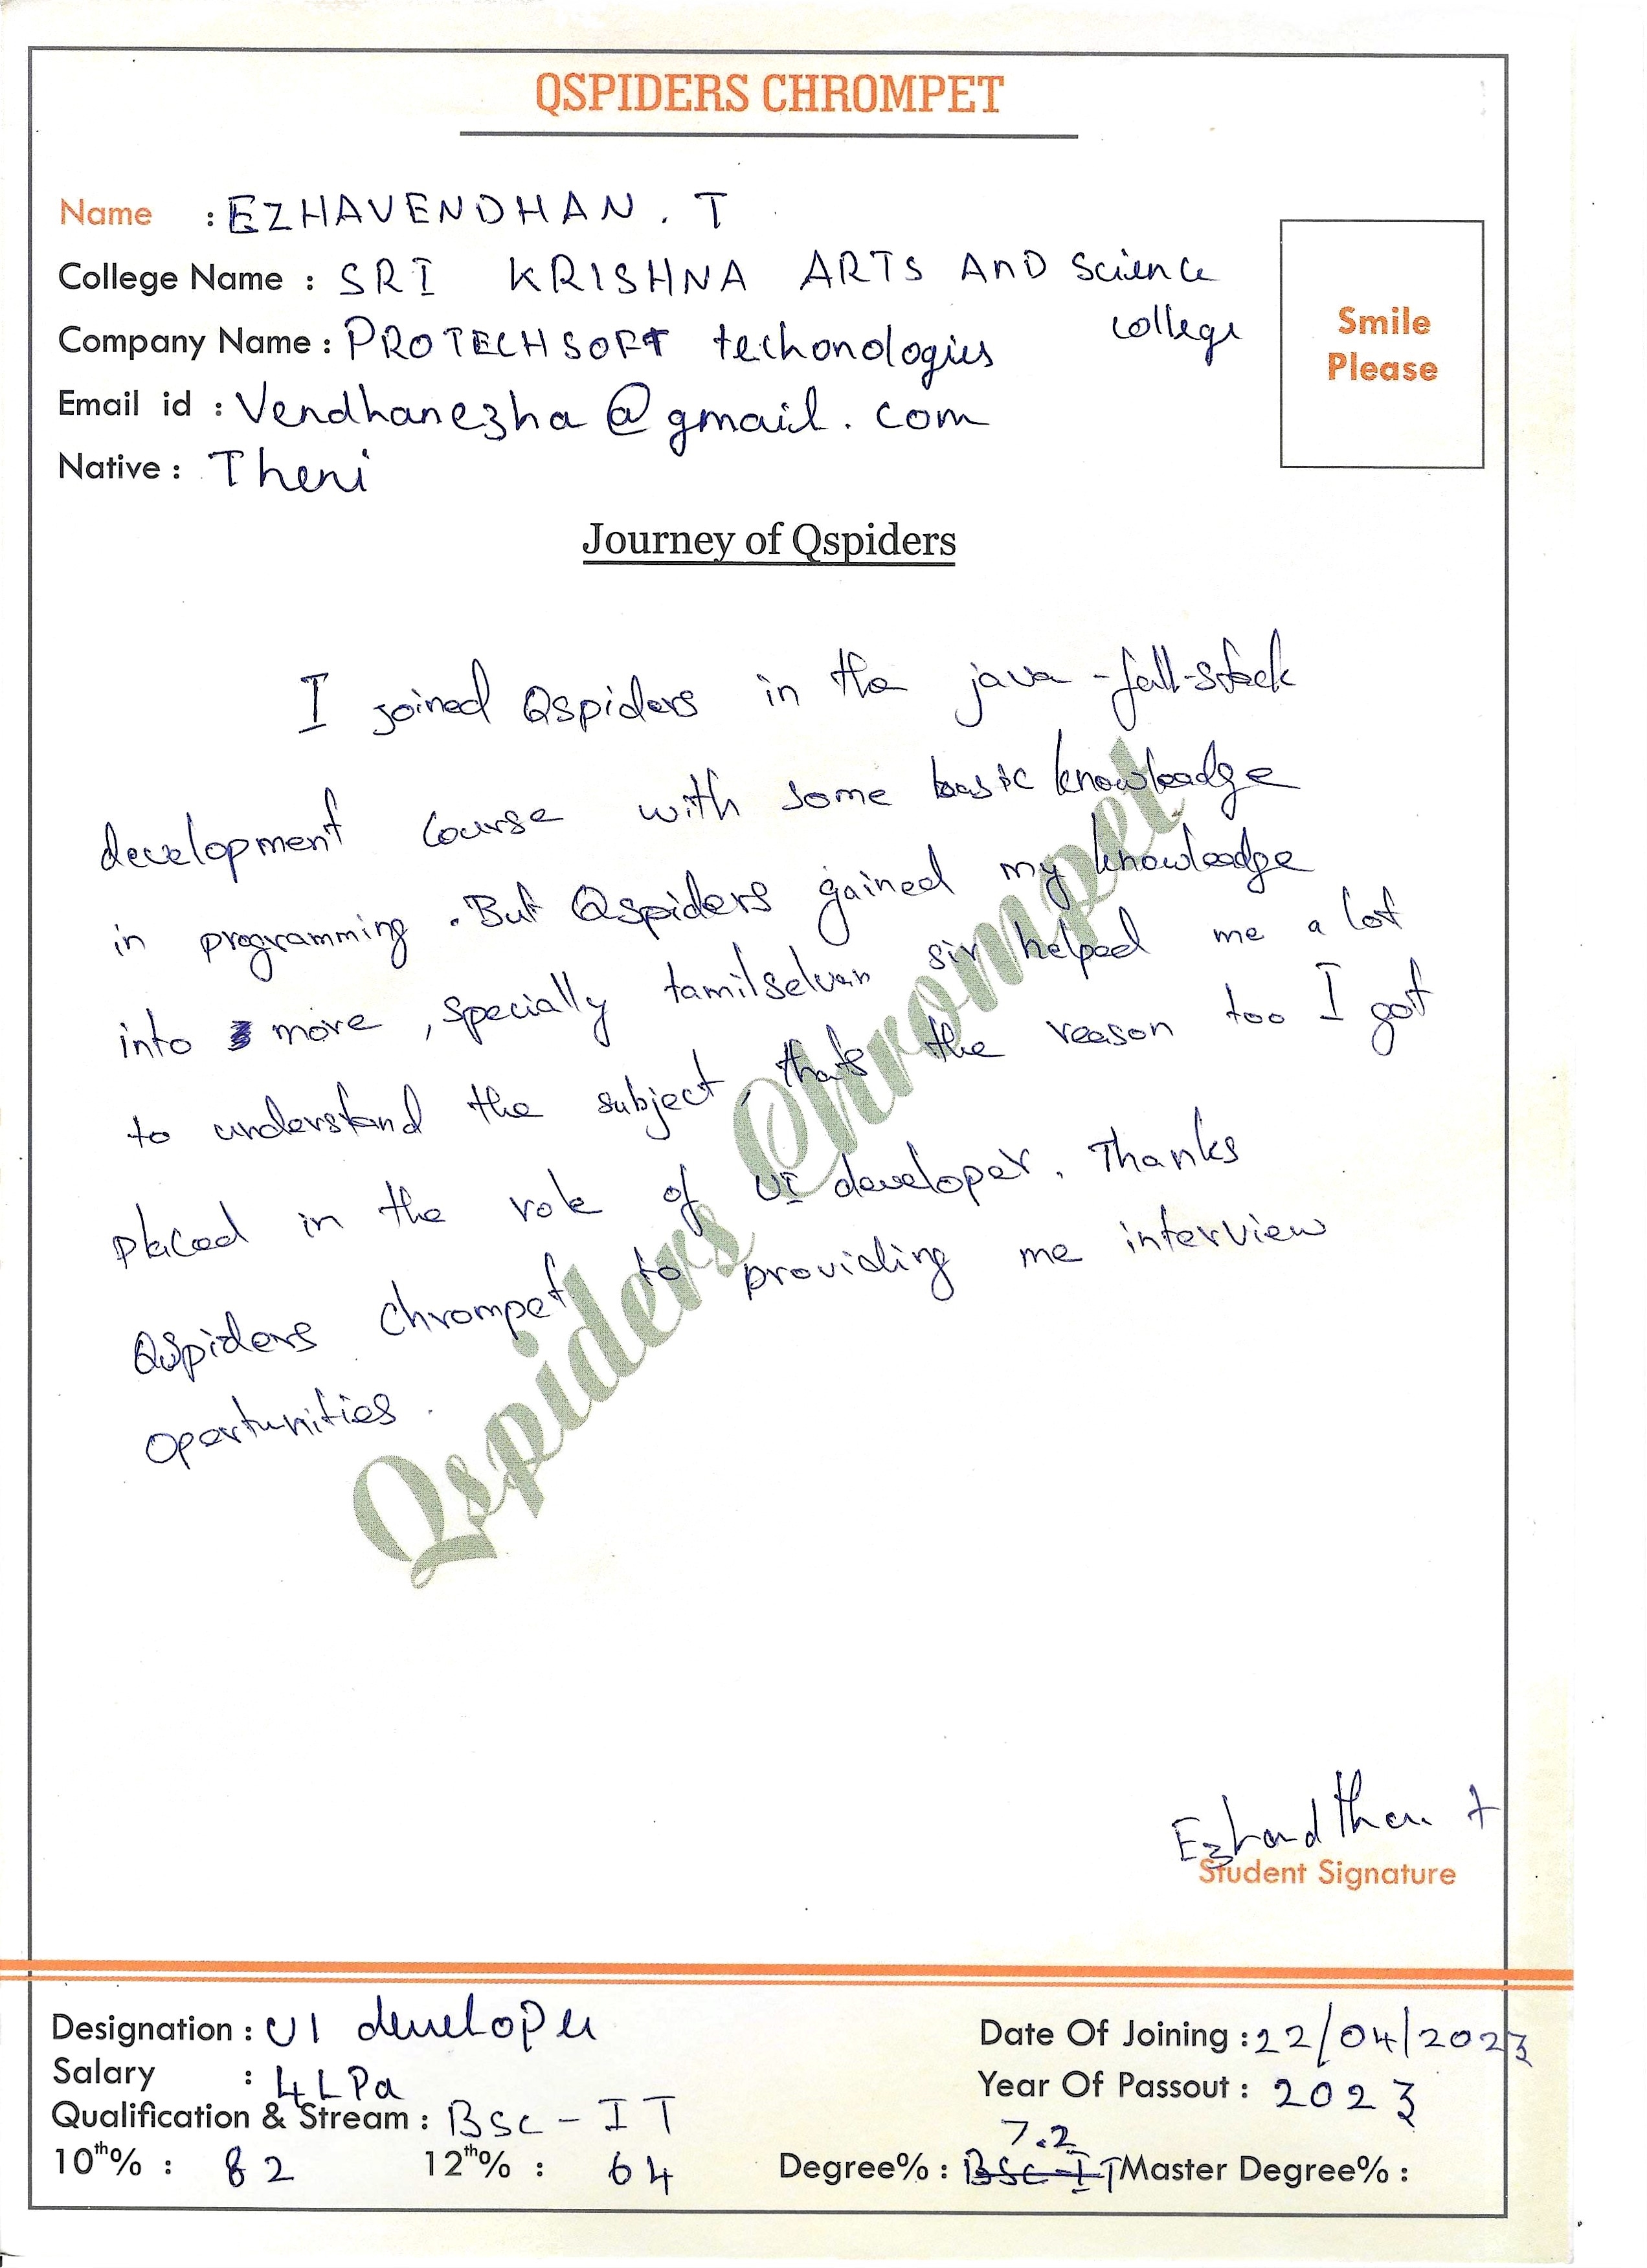 QSPIDERS CHROMPET
Name : EZHAVENDHAN . T
College Name : SRI KRISHNA ARTS AND Science
college
Company Name : PROTECHSOFT techonologies
Email id : Vendhanezha@gmail.com
Native : Theni
Smile
Please
Journey of Qspiders
I joined Qspiders in the java-full-stack
development course with some basic knowleadge
in programming. But Qspiders gained my knowleadge
into more, specially tamilselvan sir helped me a lot
to understand the subject, that's the reason too I got
placed in the role of UI developer. Thanks
Qspiders chrompet to providing me interview
oportunities.
Qspiders Chrompet
Student Signature
Designation : UI developer
Date Of Joining : 22/04/2023
Salary : 4 LPa
Year Of Passout : 2023
Qualification & Stream : BSc - IT
7.2
10th% : 82 12th% : 64 Degree% : BSC-IT Master Degree% :